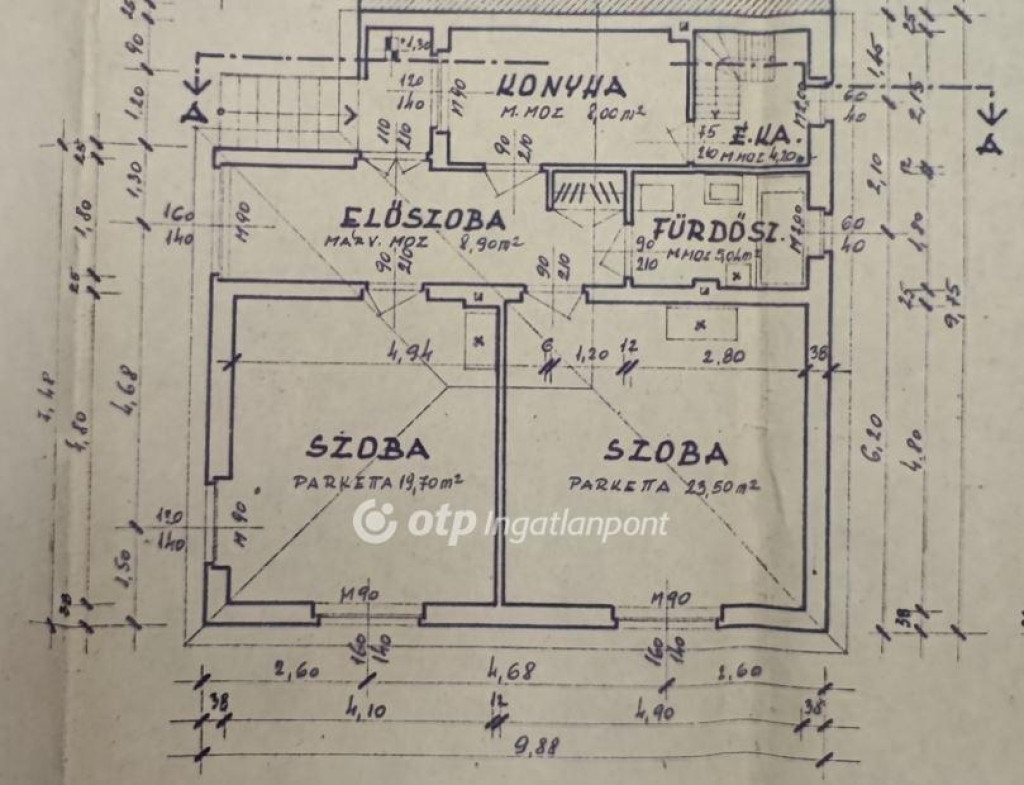 KONYHA
M. MOZ 8,00 m²
É.KA.
M MOZ 4,20 m²
ELŐSZOBA
MÁRV. MOZ 8,90 m²
FÜRDŐSZ.
M MOZ 5,04 m²
SZOBA
PARKETTA 19,70 m²
SZOBA
PARKETTA 23,50 m²
otp Ingatlanpont
A
A
+1,30
120
140
M 90
110
210
90
210
75
210
60
40
160
140
M 90
90
210
90
210
90
210
M 2,00
60
40
4,94
6
1,20
12
2,80
38
120
140
M 90
M 90
M 90
160
140
160
140
25
90
1,20
1,30
25
1,80
25
4,68
4,80
38
1,45
25
2,15
2,10
12
1,80
25
9,75
6,20
4,80
38
2,60
4,68
2,60
38
4,10
12
4,90
38
9,88